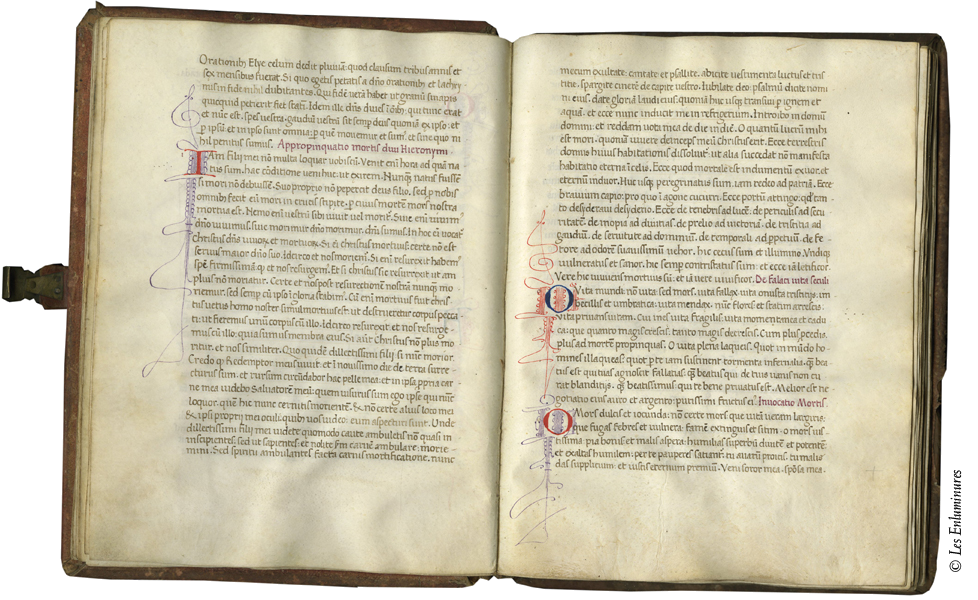 Orationib₃ Elye celum dedit pluuiā: quod clausum tribus annis et
sex mensibus fuerat. Si quo egetis petatis a dn̄o orationib₃ et lachry
mis in fide nihil dubitantes. Qui fidē uerā habet ut granū sinapis
quecunqꝫ petierit fiet statī. Idem ille dn̄s
nihil penitus sumus. Appropinquatio mortis diui Hieronymi
Iam filij mei nō multa loquar uobiscū. Venit enī hora ad quā na
tus sum. hac cōditione ueni huc: ut exirem. Nunqꝫ natus fuisse
si mori nō debuissē. Suo proprio nō pepercit deus filio, sed pro nobis
omnib₃ fecit eū mori in crucis stipite. p cuius mortē mors nostra
mortua est. Nemo enī uestrū sibi uiuit uel moritur. Siue enī uiuimꝰ
dn̄o uiuimus. siue morimur dn̄o morimur. dn̄i sumus. In hoc ū uocat
christus dn̄s uiuoꝝ et mortuoꝝ. Si ē christus mortuus. certe nō est
seruus maior dn̄o suo. Idcirco et nos moriem̄. Si enī resurexit habem̄
spē firmissimā qꝫ et nos resurgem̄. Et si christus sic resurrexit ut am
plius nō moriatur. Certe et nos post resurrectionē nostrā nunqꝫ mo
riemur. sed semp cū ipso ī gloria stabimꝰ. Cū enī mortuus fuit chris
tus uetus homo noster simul mortuus est ut destrueretur corpus pecca
ti: ut fieremus unū corpus cū illo. Idcirco resurexit et nos resurge
mus cū illo: quia sumus membra eius. Si aut̄ christus nō plus mo
ritur. et nos similiter. Quo quidē dillectissimi filij si nūc morior.
Credo qꝫ Redemptor meus uiuit: et ī nouissimo die de terra surre
cturus sum. et rursum circūdabor hac pelle mea: et in ipsa ppria car
ne mea uidebo Saluatorē meū: quem uisurus sum ego ipse qui nūc
loquor. quē hic nunc cernitis morientē. & nō certe alius loco mei
& ipsi proprij mei oculi quib₃ uos uideo: eum aspecturi sunt. Unde
dillectissimi filij mei uidete quomodo caute ambuletis nō quasi in
insipientes. sed ut sapientes et nolite p̄m carnē ambulare: morie
mini. Sed spiritu ambulantes facta carnis mortificatione. nunc
mecum exultate: cantate et psallite. abicite uestimenta luctus et tris
titie, spargite cinere de capite uestro. Iubilate deo: psalmū dicite nomi
ni eius. date gloriā laudi eius: quoniā huc usqꝫ transiui p ignem et
aquā: et ecce nunc inducit me in refrigerium. Introibo in domū
domini: et reddam uota mea de die in diē. O quantū lucrū mihi
est mori. quoniā uiuere deinceps meū Christus erit. Ecce terrestris
domus huius habitationis dissoluitur: ut alia succedat nō manufacta
habitatio eterna ī celis. Ecce quod mortale est indumentū exuor. et
eternū induor. Huc usqꝫ peregrinatus sum. iam redeo ad patriā. Ecce
brauium capio: pro quo ī agone cucurri. Ecce portū attingo: qdꝫ tan
to desyderaui desyderio. Ecce de tenebris ad lucē: de periculis ad secu
ritatē: de inopia ad diuitias: de prelio ad uictoriā: de tristitia ad
gaudiū: de seruitute ad dominiū: de temporali ad ppetuū: de fe
tore ad odorē suauissimū uehor. hic cecus sum et illuminor. Undiqꝫ
uulneratus et sanor. hic semp contristatus sum: et ecce iā letificor.
Vere hic uiuus mortuus sum: et iā uere uiuificor. De Falaci uita seculi
O Vita mundi: nō uita: sed mors. uita fallax: uita onusta tristitijs: im
becillis et umbratica: uita mendax: nūc flores et statim arescis:
Vita priuans uitam. Cui ines uita fragilis. uita momentanea et cadu
ca: que quanto magis crescis. tanto magis decrescis. Cum plus procedis
plus ad mortē propinquas. O uita plena laqueis. Quot in mūdo ho
mines illaqueas: quot p te iam sustinent tormenta infernalia: qꝫ bea
tus est qui tuas agnoscit fallatias: qꝫ beatus qui de tuis uanis non cu
rat blanditijs. qꝫ beatissimus qui te bene priuatus est. Melior est ne
gotiatio eius auro et argento: purissimi fructus ei. Inuocatio Mortis.
O Mors dulcis et iocunda: nō certe mors que uitā ueram largiris:
que fugas febres et uulnera: famē extinguis et sitim. o mors ius
tissima: pia bonis et malis aspera: humilias superbū diuitē et potentē:
et exaltas humilem: per te pauperes saciantur. tu auarū punis: tu malis
das supplicium. et iustis eternum premiū. Veni soror mea: sp̄osa mea.
© Les Enluminures